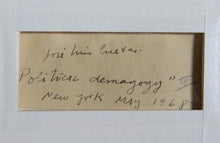 José Luis Cuevas.
Political demagogy" III
New York May 1968